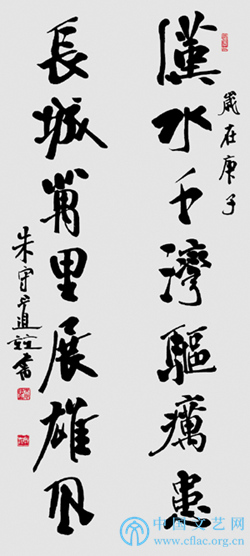 漢水千灣驅癘患
歲在庚子
長城萬里展雄風
朱守道並書
中国文艺网
www.cflac.org.cn